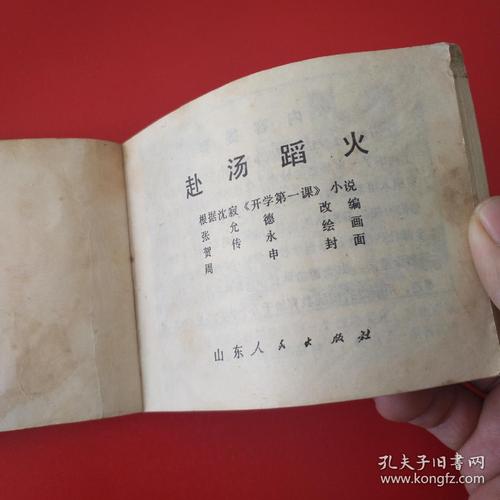 赴汤蹈火
根据沈寂《开学第一课》小说
张允德 改编
贺传永 绘画
周申 封面
山东人民出版社
孔夫子旧书网
www.kongfz.com